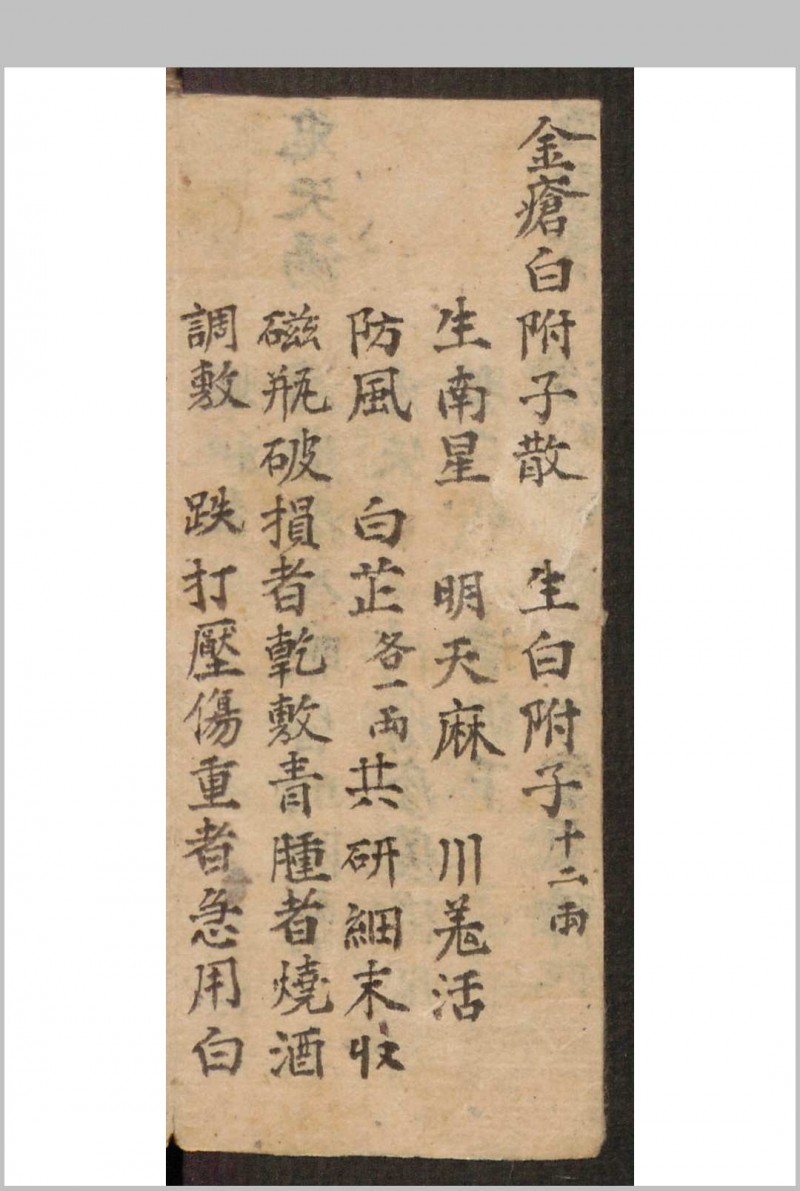 金瘡白附子散　生白附子十二兩
生南星　明天麻　川羌活
防風　白芷各一兩共研細末收
磁瓶破損者乾敷青腫者燒酒
調敷　跌打壓傷重者急用白